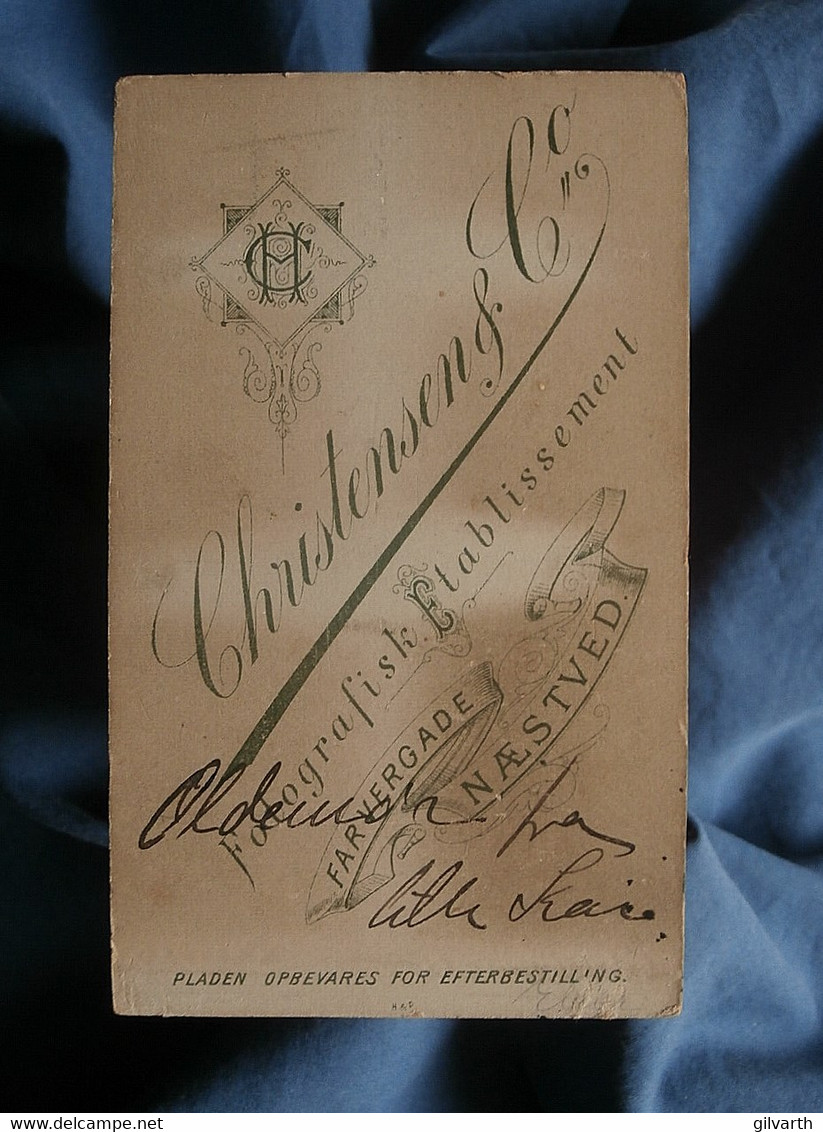 Christensen & Co
Fotografisk Etablissement
FARVERGADE
NÆSTVED.
Oldemor fra
lille
PLADEN OPBEVARES FOR EFTERBESTILLING.
gilvarth